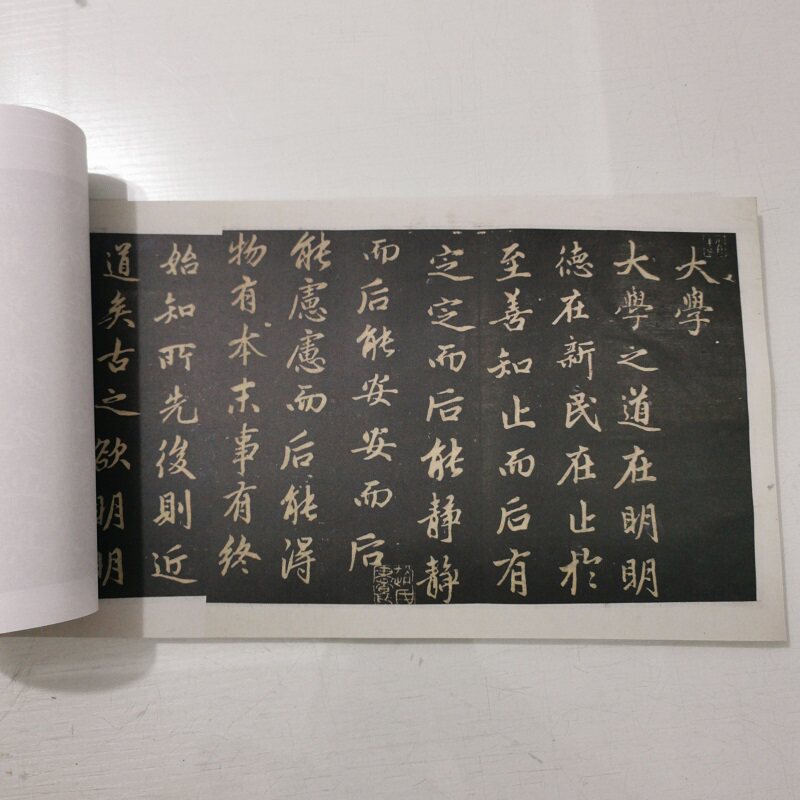 大學
大學之道在眀眀
德在新民在止於
至善知止而后有
定定而后能靜靜
而后能安安而后
能慮慮而后能得
物有本末事有終
始知所先後則近
道矣古之欲眀眀